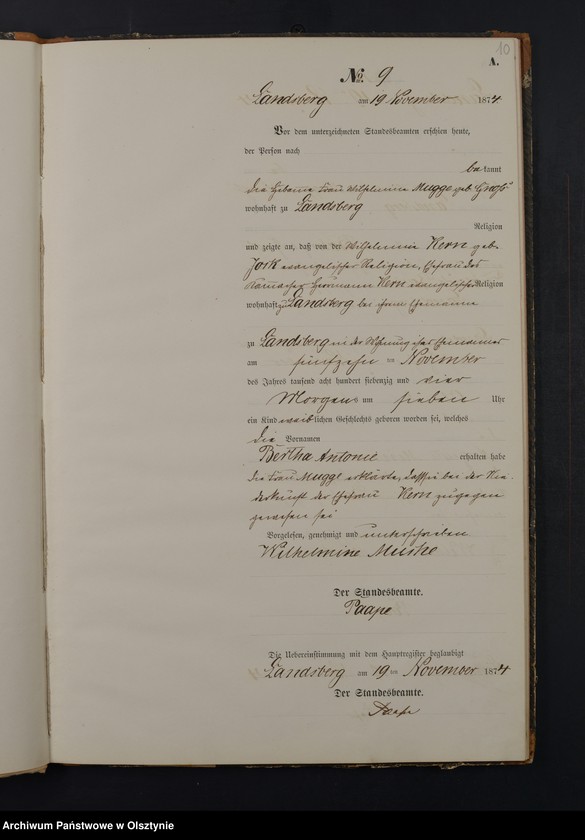 10
A.
No. 9
Landsberg am 19 November 1874
Vor dem unterzeichneten Standesbeamten erschien heute,
der Person nach
bekannt
die Hebamme Frau Wilhelmine Mugge geb.
wohnhaft zu Landsberg
Religion
und zeigte an, daß von der Wilhelmine Kern geb.
Jork evangelischer Religion, Ehefrau des
Hermann Kern evangelischer Religion
wohnhaft zu Landsberg bei ihrem Ehemanne
zu Landsberg in der Wohnung ihres Ehemannes
am fünfzehn ten November
des Jahres tausend acht hundert siebenzig und vier
Morgens um sieben Uhr
ein Kind weiblichen Geschlechts geboren worden sei, welches
die Vornamen
Bertha Antonie erhalten habe
die Frau Mugge erklärte, daß sie bei der Nie-
derkunft der Ehefrau Kern zugegen
gewesen sei
Vorgelesen, genehmigt und unterschrieben
Wilhelmine
Der Standesbeamte.
Paape
Die Uebereinstimmung mit dem Hauptregister beglaubigt
Landsberg am 19 ten November 1874
Der Standesbeamte.
Paape
Archiwum Państwowe w Olsztynie